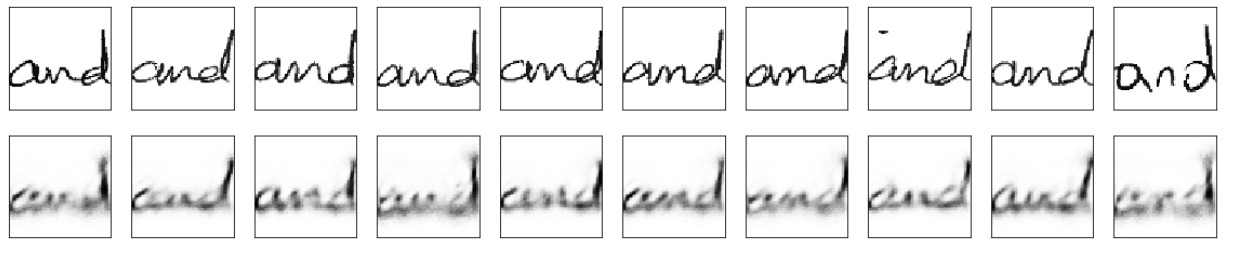 and and and and and and and and and and
and and and and and and and and and and